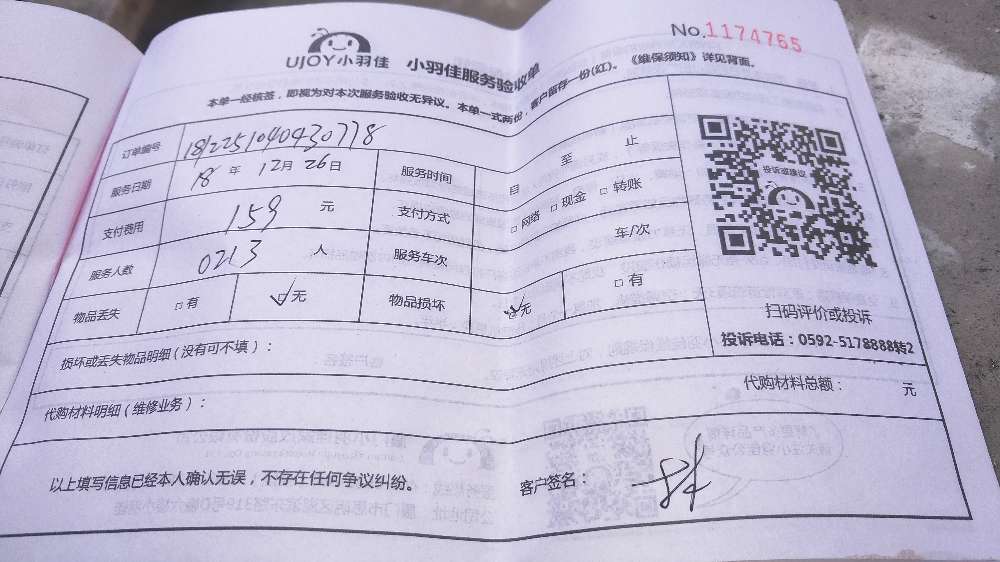 No.1174765
UJOY小羽佳 小羽佳服务验收单
本单一经核签，即视为对本次服务验收无异议。本单一式两份，客户留存一份(红)。《维保须知》详见背面。
订单编号 1812251040430778
服务日期 18 年 12月 26日 服务时间 自 至 止
支付费用 159 元 支付方式 □网络 □现金 □转账
服务人数 0213 人 服务车次 车/次
物品丢失 □有 ☑无 物品损坏 ☑无 □有
投诉或建议
扫码评价或投诉
投诉电话：0592-5178888转2
损坏或丢失物品明细(没有可不填)：
代购材料明细(维修业务)： 代购材料总额： 元
以上填写信息已经本人确认无误，不存在任何争议纠纷。 客户签名：